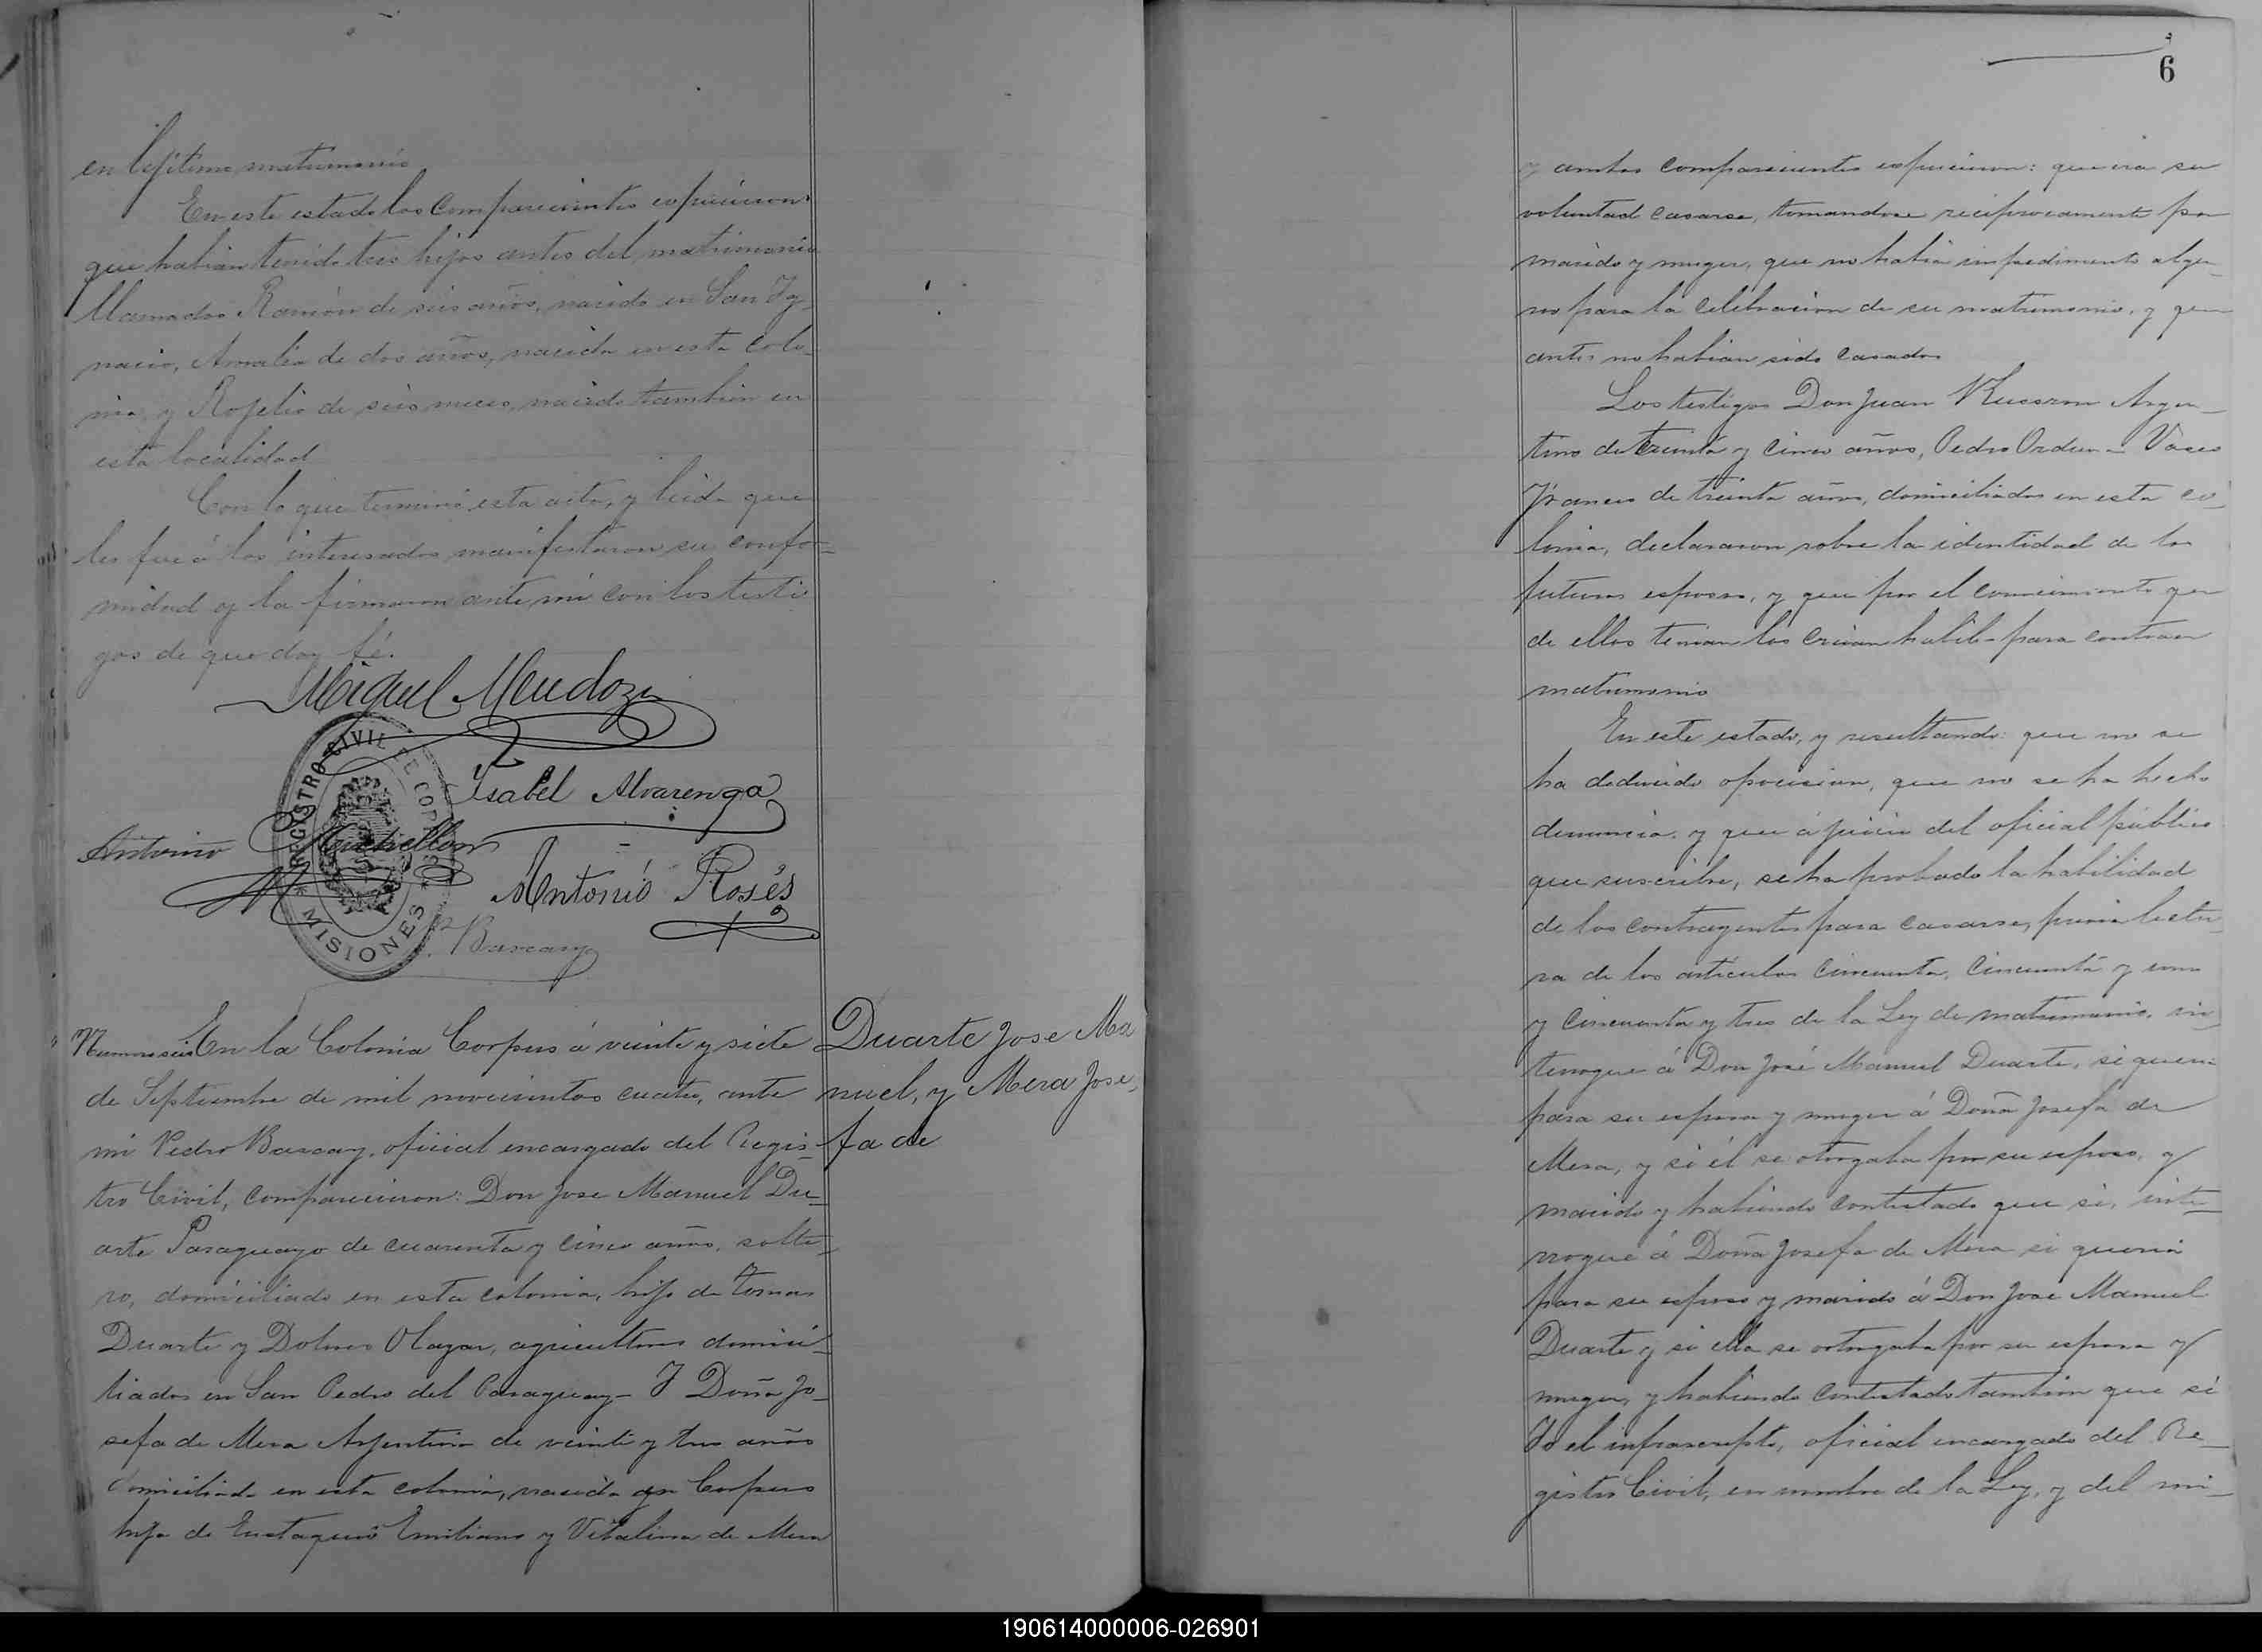 en legítimo matrimonio
En este estado los comparecientes expusieron:
que habian tenido tres hijos antes del matrimonio
llamados Ramón de seis años, nacido en San Ig-
nacio, Amalia de dos años, nacida en esta colo-
nia, y Rogelio de seis meses, nacido tambien en
esta localidad
Con lo que terminó esta acta, y leida que
les fué á los interesados manifestaron su confor-
midad y la firmaron ante mí con los testi
gos de que doy fé.
Miguel Mendoza
Isabel Alvarenga
Antonio
Antonió Rosés
P. Bareary
REGISTRO CIVIL DE CORPUS
* MISIONES *
Numero seis En la Colonia Corpus á veinte y siete
de Septiembre de mil novecientos cuatro, ante
mi Pedro Bareary, oficial encargado del Regis-
tro Civil, comparecieron: Don Jose Manuel Du-
arte Paraguayo de cuarenta y cinco años, solte-
ro, domiciliado en esta colonia, hijo de Tomas
Duarte y Dolores Olazar, agricultores domici-
liados en San Pedro del Paraguay- Y Doña Jo-
sefa de Mera Argentina de veinte y tres años
domiciliada en esta colonia, nacida en Corpus
hija de Eustaquio Emiliano y Vitalina de Mera
Duarte Jose Ma
nuel, y Mera Jose,
fa de
6
y ambos comparecientes expusieron: que era su
voluntad casarse, tomandose reciprocamente por
marido y muger, que no habia impedimento algu-
no para la celebracion de su matrimonio, y que
antes no habian sido casados
Los testigos Don Juan Argen-
tino de treinta y cinco años, Pedro Vasco
Frances de treinta años, domiciliados en esta co-
lonia, declararon sobre la identidad de los
futuros esposos, y que por el conocimiento que
de ellos tenian los creian habil- para contraer
matrimonio
En este estado, y resultando: que no se
ha deducido oposicion, que no se ha hecho
denuncia, y que á juicio del oficial público
que suscribe, se ha probado la habilidad
de los contrayentes para casarse, previa lectu-
ra de los artículos cincuenta, cincuenta y uno
y cincuenta y tres de la Ley de matrimonio, in-
terrogue á Don José Manuel Duarte, si queria
para su esposa y muger á Doña Josefa de
Mera, y si él se otorgaba por su esposo, y
marido y habiendo contestado que si, inte-
rrogue á Doña Josefa de Mera si queria
para su esposo y marido á Don Jose Manuel
Duarte y si ella se otorgaba por su esposa y
muger, y habiendo contestado tambien que si
Yo el infrascripto, oficial encargado del Re-
gistro Civil, en nombre de la Ley, y del mi-
190614000006-026901